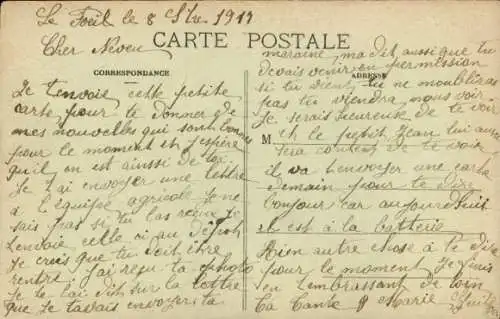 Le Foeil le 8 Sbre 1919
Cher Neveu
CARTE POSTALE
CORRESPONDANCE
Je tenvoie cette petite
carte pour te donner de
mes nouvelles qui sont bonnes
pour le moment et j'espère
qu'il en est ainsie de toi
Je t'ai envoyer une lettre
a l'équipe agricole je ne
sais pas si tu las reçue je
t'envoie celle ci au dépôt
Je crois que tu doit être
rentré j'ai reçu ta photo
Je te l'ai dit sur la lettre
que je t'avais envoyer ta
maraine ma dit aussi que tu
devais venir en permission
ADRESSE
si tu vient tu ne moublieras
pas tu viendra nous voir
Je serais heureuse de te voir
M
et le petit Jean lui aussi
sera content de te voir
il va t'envoyer une carte
demain pour te dire
bonjour car aujourd'huit
il est à la batterie
Rien autre chose à te dire
pour le moment Je finis
en t'embrassant de loin
ta tante Marie